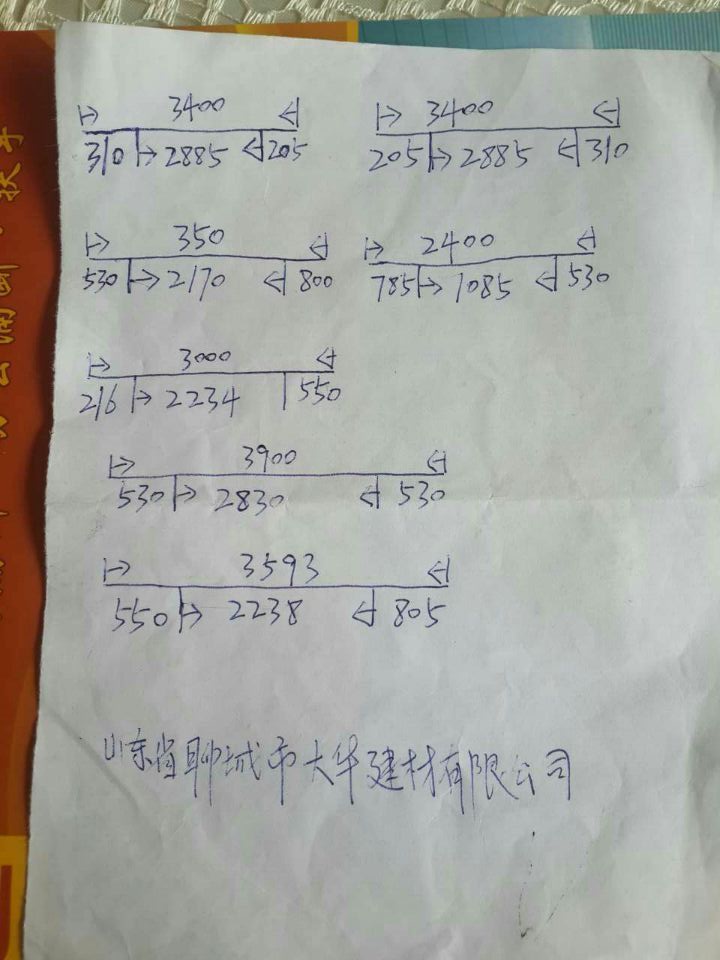 3400 3400
310 2885 205 205 2885 310
350 2400
530 2170 800 785 1085 530
3000
216 2234 550
3900
530 2830 530
3593
550 2238 805
山东省聊城市大华建材有限公司